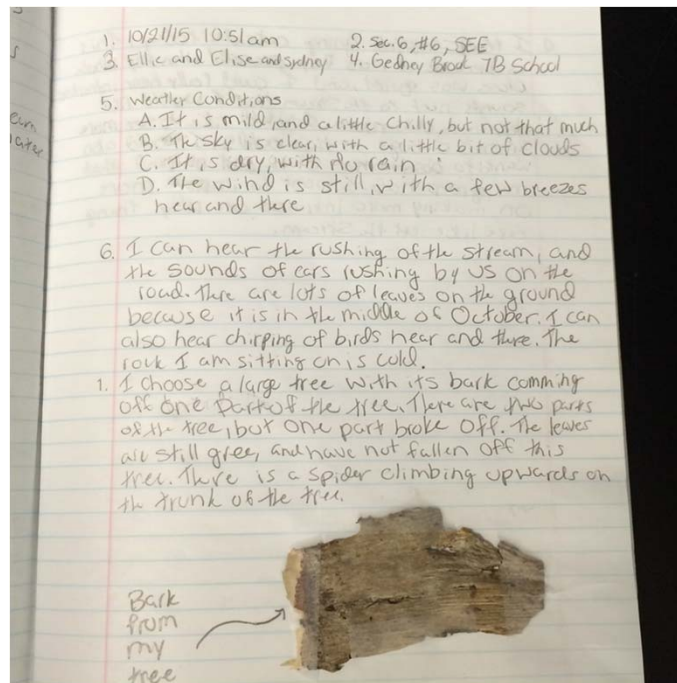 1. 10/21/15 10:51am 2. Sec. 6, #6, SEE
3. Ellie and Elise and Sydney 4. Gedney Brook 7B School
5. Weather Conditions
A. It is mild, and a little chilly, but not that much
B. The sky is clear, with a little bit of clouds
C. It is dry, with no rain
D. The wind is still, with a few breezes
hear and there
6. I can hear the rushing of the stream, and
the sounds of cars rushing by us on the
road. There are lots of leaves on the ground
because it is in the middle of October. I can
also hear chirping of birds hear and there. The
rock I am sitting on is cold.
1. I choose a large tree with its bark comming
off one part of the tree. There are two parts
of the tree, but one part broke off. The leaves
are still gree, and have not fallen off this
tree. There is a spider climbing upwards on
the trunk of the tree.
Bark
from
my
tree